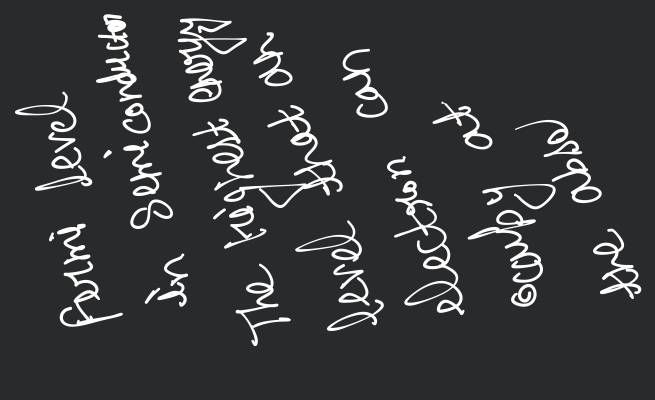 fermi level
in semiconductor
The highest energy
level that an
electron can
occupy at
the